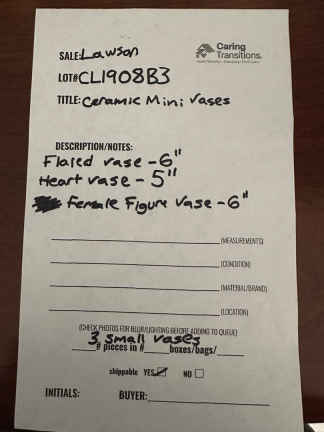 SALE: Lawson
Caring
Transitions.
LOT# CL1908B3
TITLE: Ceramic Mini Vases
DESCRIPTION/NOTES:
Flaied vase - 6"
Heart vase - 5"
Female Figure Vase - 6"
(MEASUREMENTS)
(CONDITION)
(MATERIAL/BRAND)
(LOCATION)
(CHECK PHOTOS FOR BLUR/LIGHTING BEFORE ADDING TO QUEUE)
3 small vases
# pieces in # boxes/bags/
shippable YES NO
INITIALS: BUYER: